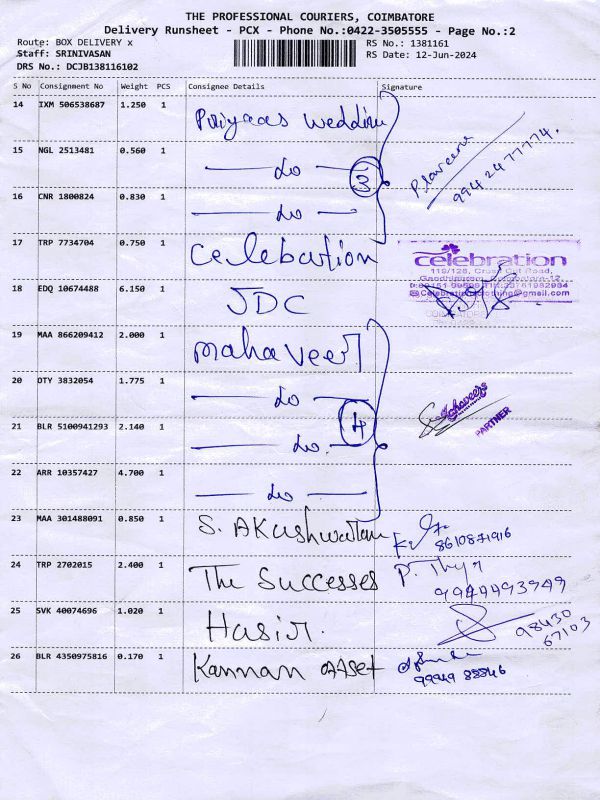 THE PROFESSIONAL COURIERS, COIMBATORE
Delivery Runsheet - PCX - Phone No.:0422-3505555 - Page No.:2
Route: BOX DELIVERY x
RS No.: 1381161
Staff: SRINIVASAN
RS Date: 12-Jun-2024
DRS No.: DCJB138116102
S No Consignment No Weight PCS Consignee Details Signature
14 IXM 506538687 1.250 1 Priyaas wedding
15 NGL 2513481 0.560 1 do 3
9942477774.
16 CNR 1800824 0.830 1 do
17 TRP 7734704 0.750 1 Celebration
celebration
119/126, Cross Cut Road,
Gandhipuram, Coimbatore-12.
18 EDQ 10674488 6.150 1 JDC
19 MAA 866209412 2.000 1 mahaveer
20 OTY 3832054 1.775 1 do 4
PARTNER
21 BLR 5100941293 2.140 1 do
22 ARR 10357427 4.700 1 do
23 MAA 301488091 0.850 1 S. AKashwatam
8610871916
24 TRP 2702015 2.400 1 The Successes
9944493949
25 SVK 40074696 1.020 1 Hasir.
98430
67103
26 BLR 4350975816 0.170 1 Kannan Asset
99949 88846